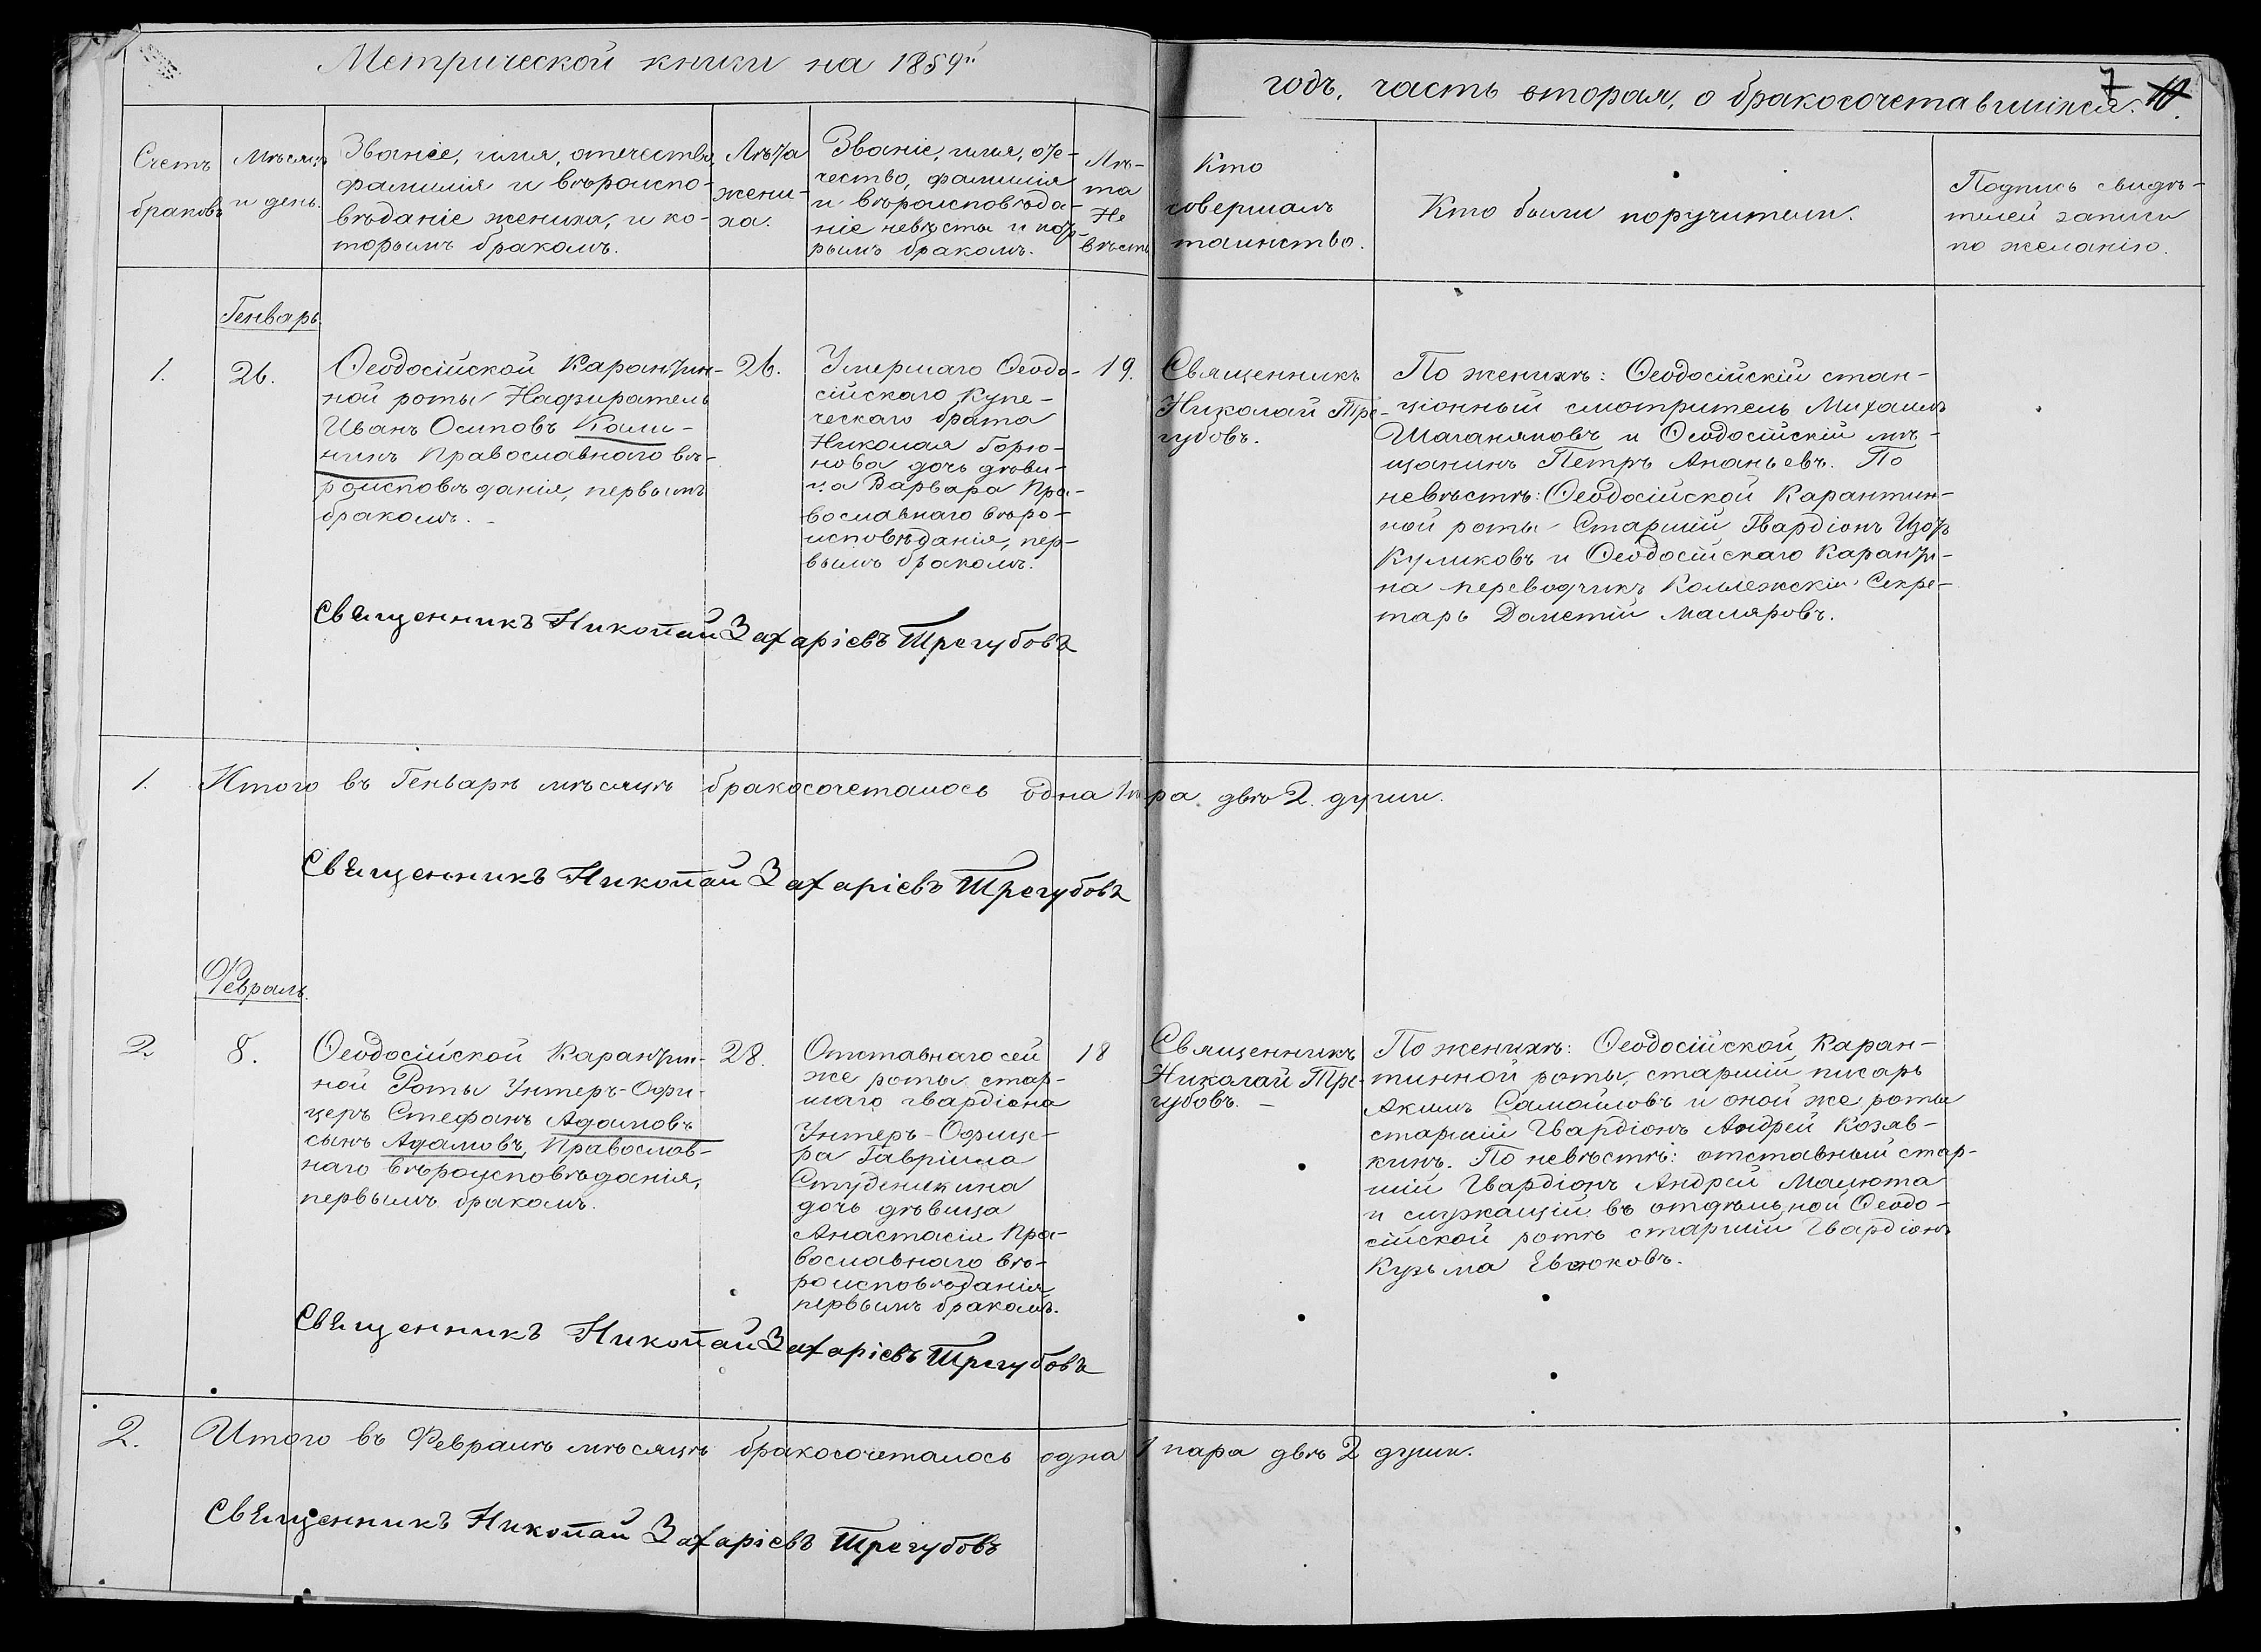 Метрической книги на 1859й
годъ, часть вторая, о бракосочетавшихся.
7
10.
Счетъ
браковъ
Мѣсяцъ
и день.
Званіе, имя, отечество,
фамилія и вѣроиспо-
вѣданіе жениха, и ко-
торымъ бракомъ.
Лѣта
жени-
ха.
Званіе, имя, оте-
чество, фамилія
и вѣроисповѣда-
ніе невѣсты и кото-
рымъ бракомъ.
Лѣ-
та
Не
вѣсты
Кто
совершалъ
таинство.
Кто были поручители.
Подпись свидѣ-
телей записи
по желанію.
Генварь.
1.
26.
Ѳеодосійской Карантин-
ной роты Нафиратель
Иванъ Осиповъ Кали-
нинъ Православнаго вѣ-
роисповѣданія, первымъ
бракомъ.
26.
Умершаго Ѳеодо-
сійскаго Купе-
ческаго брата
Николая Горю-
нова дочь дѣви-
ца Варвара Пра-
вославнаго вѣро-
исповѣданія, пер-
вымъ бракомъ.
19.
Священникъ
Николай Тре-
губовъ.
По женихѣ: Ѳеодосійскій стан-
ціонный смотритель Михаилъ
и Ѳеодосійскій мѣ-
щанинъ Петръ Ананьевъ. По
невѣстѣ: Ѳеодосійской Карантин-
ной роты Старшій Гвардіонъ
Куликовъ и Ѳеодосійскаго Каранти-
на переводчикъ Коллежскій Секре-
тарь Дометій Маляровъ.
Священникъ Николай Захаріевъ Трегубовъ
1. Итого въ Генварѣ мѣсяцѣ бракосочеталось одна 1 пара двѣ 2. души.
Священникъ Николай Захаріевъ Трегубовъ
Февраль.
2.
8.
Ѳеодосійской Карантин-
ной Роты Унтеръ-Офи-
церъ Стефанъ Адамовъ
сынъ Адамовъ, Православ-
наго вѣроисповѣданія,
первымъ бракомъ.
28.
Отставнаго сей
же роты стар-
шаго гвардіона
Унтеръ-Офице-
ра Гавріила
Студеникина
дочь дѣвица
Анастасія Пра-
вославнаго вѣ-
роисповѣданія
первымъ бракомъ.
18
Священникъ
Николай Тре-
губовъ.
По женихѣ: Ѳеодосійской Каран-
тинной роты, старшій писарь
Акимъ Самойловъ и оной же роты
старшій Гвардіонъ Андрей Козяв-
кинъ. По невѣстѣ: отставный стар-
шій Гвардіонъ Андрей Малюта
и служащій въ отдѣльной Ѳеодо-
сійской ротѣ старшій Гвардіонъ
Кузьма Евлюковъ.
Священникъ Николай Захаріевъ Трегубовъ
2. Итого въ Февралѣ мѣсяцѣ бракосочеталось одна 1 пара двѣ 2 души.
Священникъ Николай Захаріевъ Трегубовъ